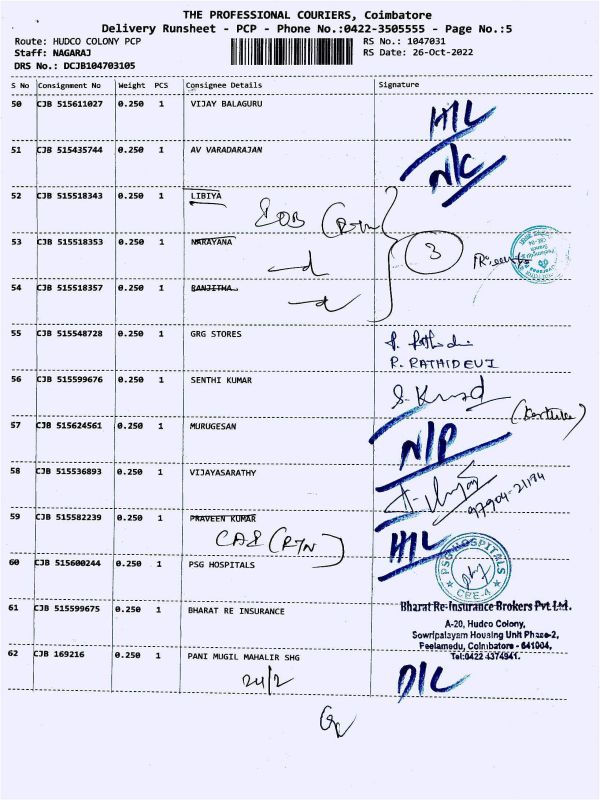 THE PROFESSIONAL COURIERS, Coimbatore
Delivery Runsheet - PCP - Phone No.:0422-3505555 - Page No.:5
Route: HUDCO COLONY PCP RS No.: 1047031
Staff: NAGARAJ RS Date: 26-Oct-2022
DRS No.: DCJB104703105
S No Consignment No Weight PCS Consignee Details Signature
50 CJB 515611027 0.250 1 VIJAY BALAGURU H/L
51 CJB 515435744 0.250 1 AV VARADARAJAN N/C
52 CJB 515518343 0.250 1 LIBIYA
53 CJB 515518353 0.250 1 NARAYANA 3
54 CJB 515518357 0.250 1 RANJITHA
55 CJB 515548728 0.250 1 GRG STORES
R. RATHIDEVI
56 CJB 515599676 0.250 1 SENTHI KUMAR
57 CJB 515624561 0.250 1 MURUGESAN N/P
58 CJB 515536893 0.250 1 VIJAYASARATHY
97904-21194
59 CJB 515582239 0.250 1 PRAVEEN KUMAR H/L
(RTN)
60 CJB 515600244 0.250 1 PSG HOSPITALS PSG HOSPITALS
CBE-4
61 CJB 515599675 0.250 1 BHARAT RE INSURANCE Bharat Re-Insurance Brokers Pvt Ltd.
A-20, Hudco Colony,
Sowripalayam Housing Unit Phase-2,
Peelamedu, Coimbatore - 641004,
Tel:0422 4374941.
62 CJB 169216 0.250 1 PANI MUGIL MAHALIR SHG D/L
24/2